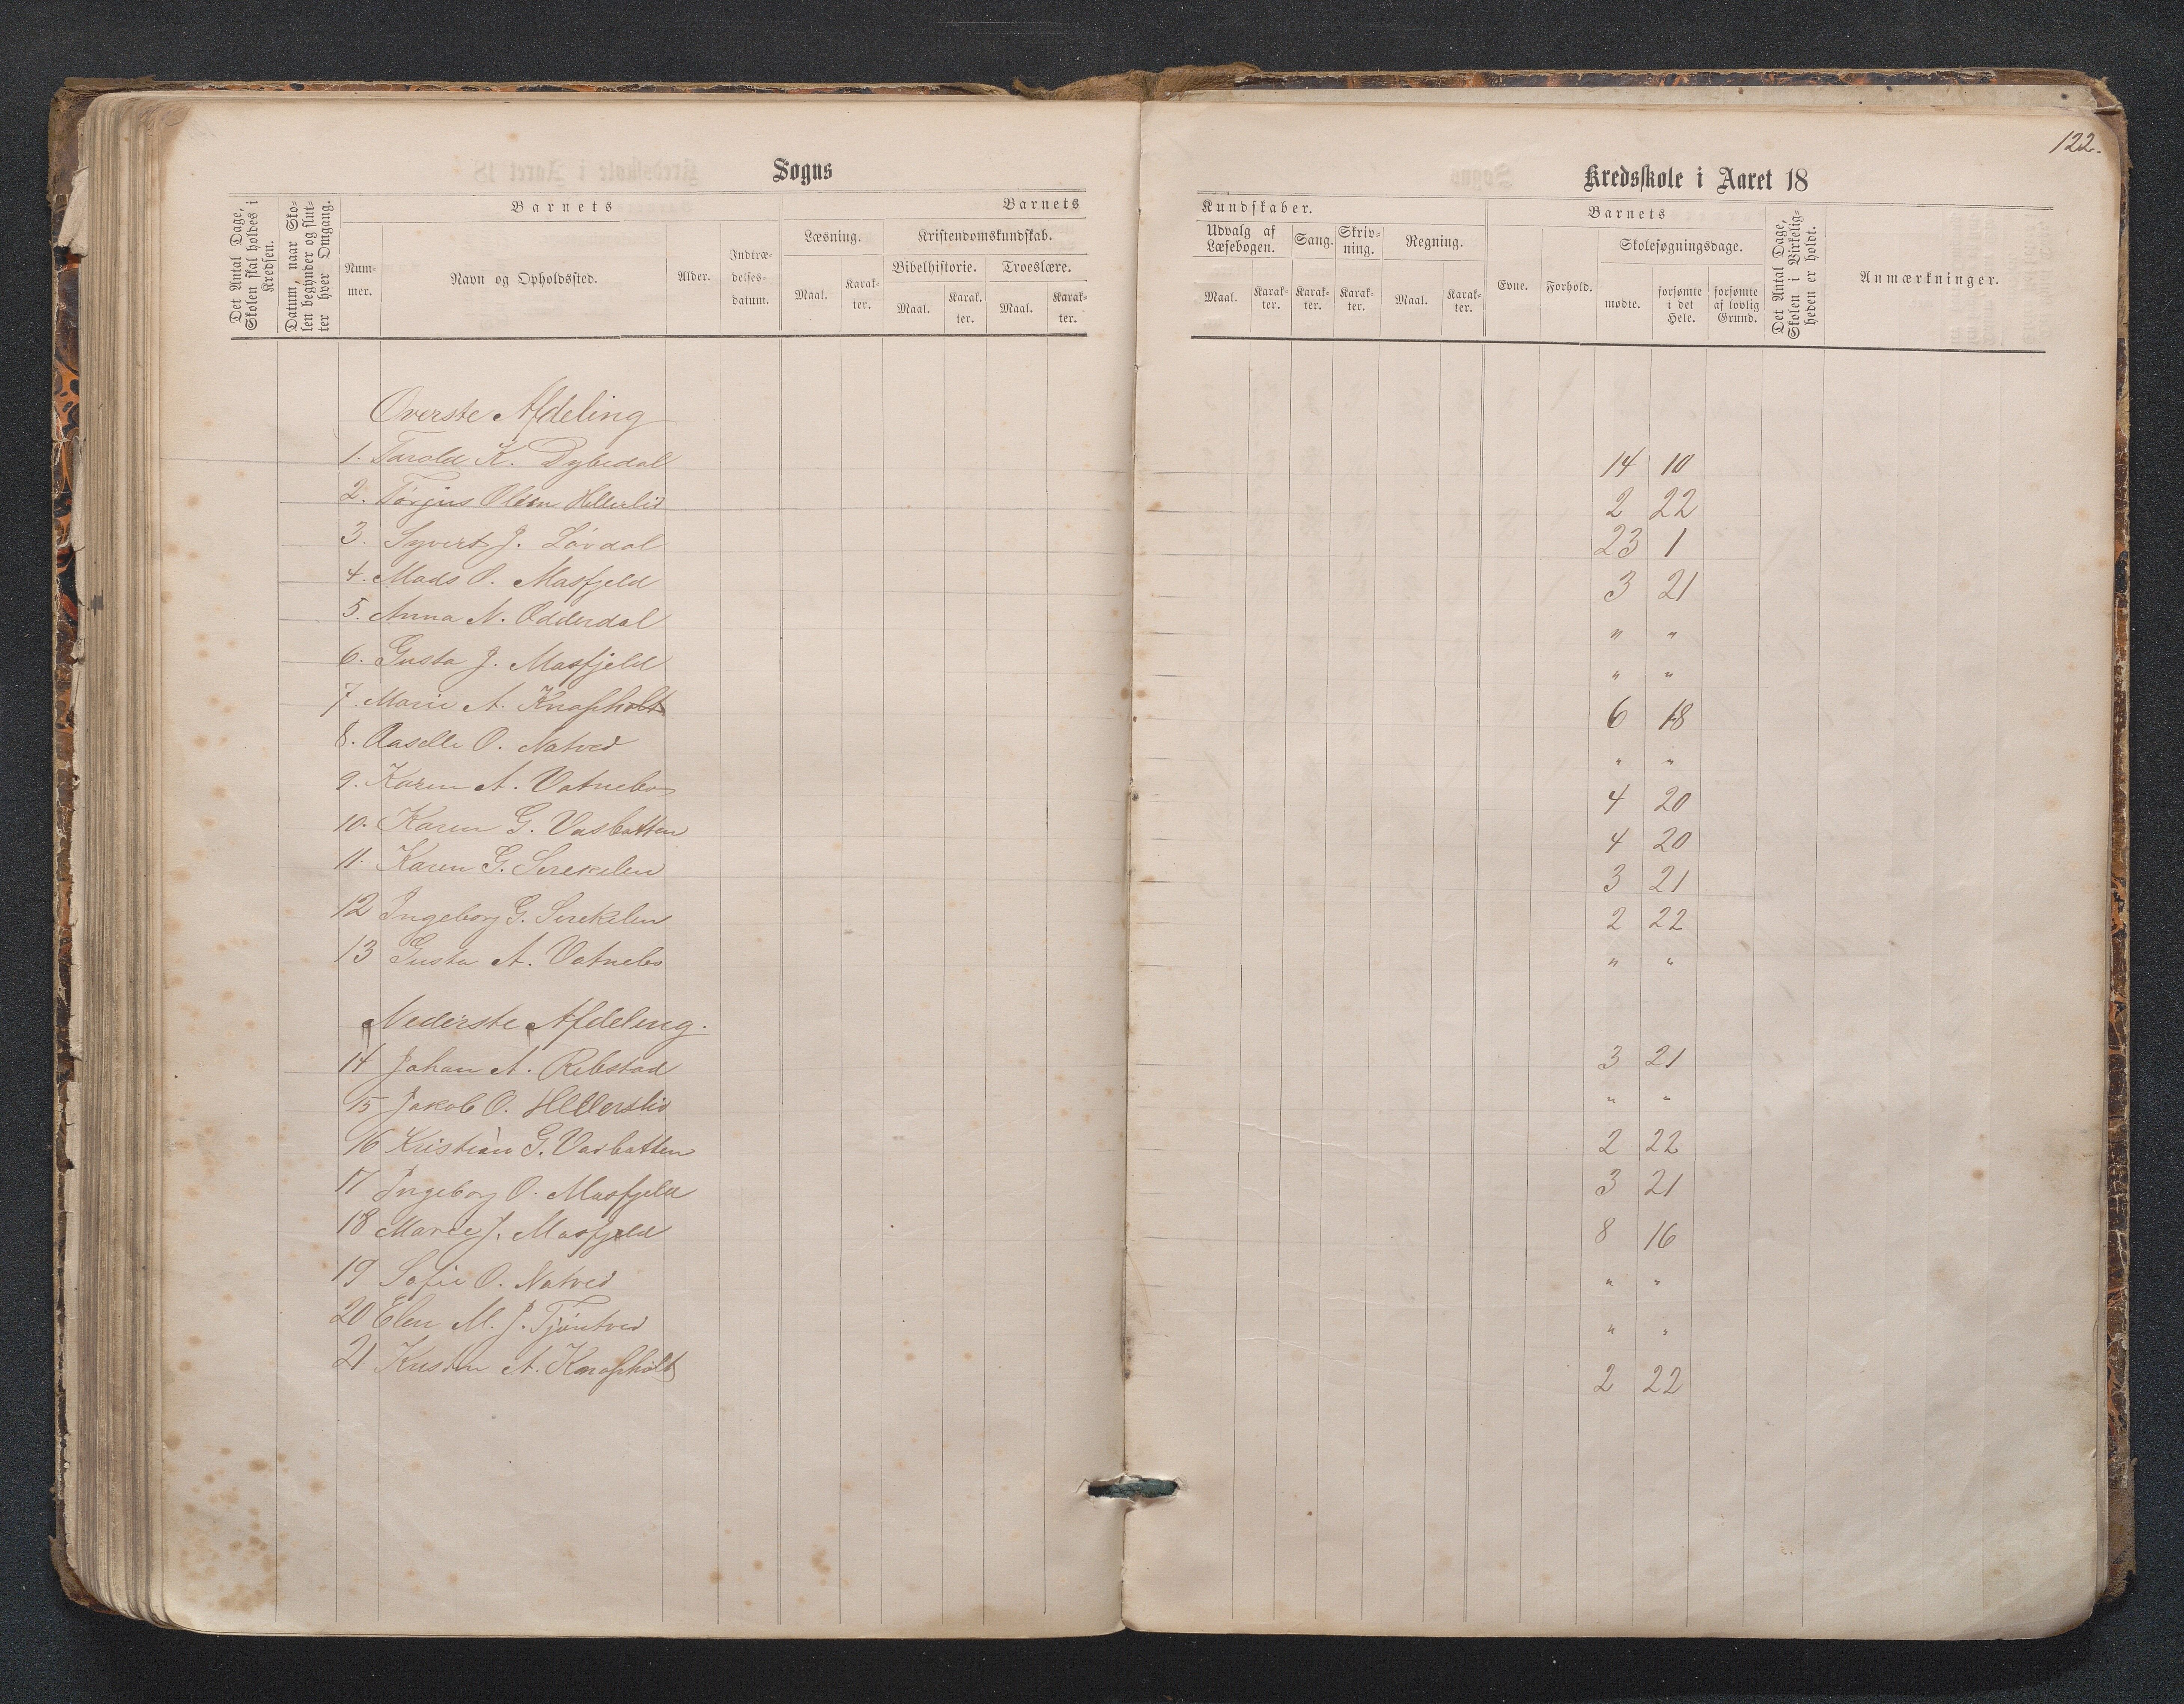 122.
Sogns
Kredsskole i Aaret 18
Det Antal Dage, Skolen skal holdes i Kredsen.
Datum, naar Skolen begynder og slutter hver Omgang.
Barnets
Nummer.
Navn og Opholdssted.
Alder.
Indtrædelsesdatum.
Barnets
Læsning.
Maal.
Karakter.
Kristendomskundskab.
Bibelhistorie.
Maal.
Karakter.
Troeslære.
Maal.
Karakter.
Kundskaber.
Udvalg af Læsebogen.
Maal.
Karakter.
Sang.
Karakter.
Skrivning.
Karakter.
Regning.
Maal.
Karakter.
Barnets
Evne.
Forhold.
Skolesøgningsdage.
mødte.
forsømte i det Hele.
forsømte af lovlig Grund.
Det Antal Dage, Skolen i Virkeligheden er holdt.
Anmærkninger.
Øverste Afdeling
1. Tarald K. Dybedal 14 10
2. Torjus Olsen Hellerlid 2 22
3. Syvert J. Løvdal 23 1
4. Mads O. Masfjeld 3 21
5. Anna N. Odderdal " "
6. Gusta J. Masfjeld " "
7. Marie A. Knapholt 6 18
8. Aaselle O. Natved " "
9. Karen A. Vatnebo 4 20
10. Karen G. Vasbotten 4 20
11. Karen G. Sireklen 3 21
12 Ingeborg G. Sireklen 2 22
13 Gusta A. Vatnebo " "
Nederste Afdeling.
14 Johan A. Ribstad 3 21
15 Jakob O. Hellerslid " "
16 Kristian G. Vasbotten 2 22
17 Ingeborg O. Masfjeld 3 21
18 Marie J. Masfjeld 8 16
19 Sofie O. Natved " "
20 Elen M. J. Tjøntved " "
21 Kristin A. Knapholt 2 22